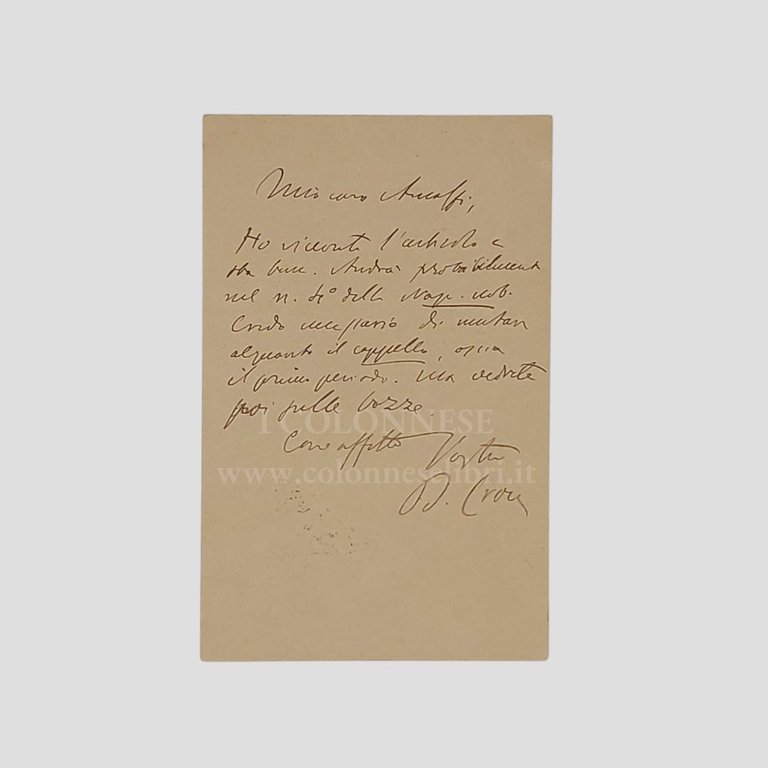 Mio caro Amalfi,
Ho ricevuto l'articolo e
sta bene. Andrà probabilmente
nel n. di della Nap. nob.
Credo necessario di mutare
alquanto il cappello, ossia
il primo periodo. Ma vedrete
poi sulle bozze.
I COLONNESE
Con affetto Vostro
www.colonneselibri.it
B. Croce